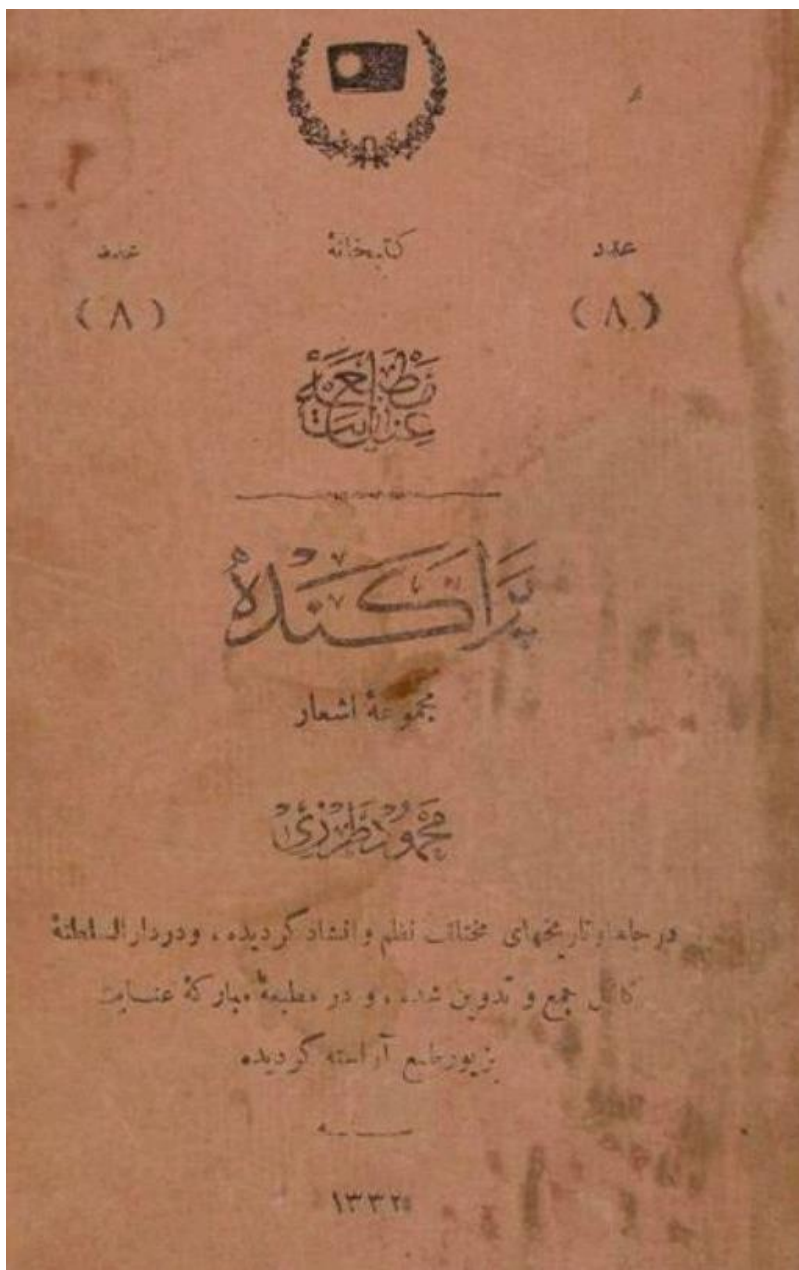 عدد کتابخانهٔ عدد
(۸) (۸)
مطبعهٔ عنایت
پراکنده
مجموعهٔ اشعار
محمود طرزی
در جاها و تاریخهای مختلف نظم و انشاد کردیده ، و در دار السلطنهٔ
کابل جمع و تدوین شده ، و در مطبعهٔ مبارکهٔ عنایت
بزیور طبع آراسته کردیده
۱۳۳۲